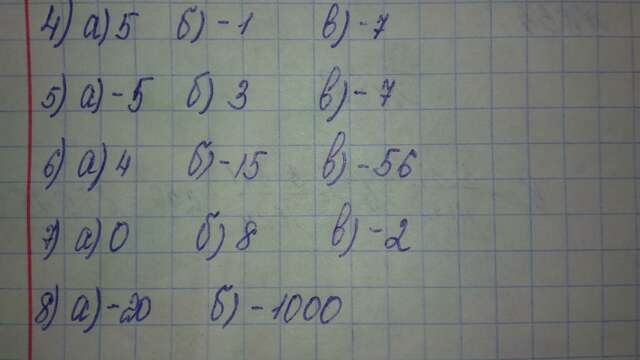 4) а) 5 б) -1 в) -7
5) а) -5 б) 3 в) -7
6) а) 4 б) -15 в) -56
7) а) 0 б) 8 в) -2
8) а) -20 б) -1000